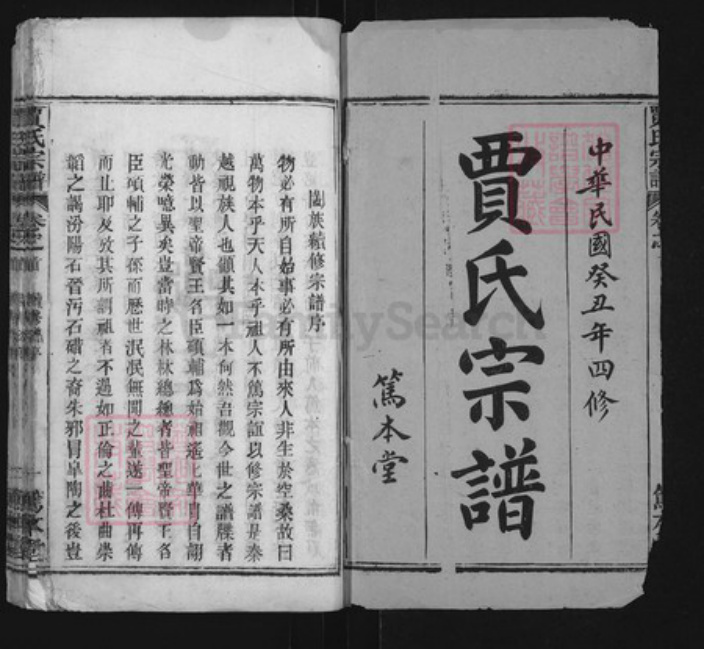 中華民國癸丑年四修
賈氏宗譜
篤本堂
闔族續修宗譜序
物必有所自始事必有所由來人非生於空桑故曰
萬物本乎天人本乎祖人不篤宗誼以修宗譜是秦
越視族人也顧其如一本何然吾觀今世之譜牒者
動皆以聖帝賢王名臣碩輔爲始祖遙遙華胄自詡
光榮噫異矣豈當時之林林總總者皆聖帝賢王名
臣碩輔之子孫而歷世泯泯無聞之輩遂一傳再傳
而止耶及攷其所謂祖者不過如正倫之曲杜曲崇
韜之謁汾陽石晉沔石碏之裔朱邪冒皐陶之後豈
賈氏宗譜
FamilySearch